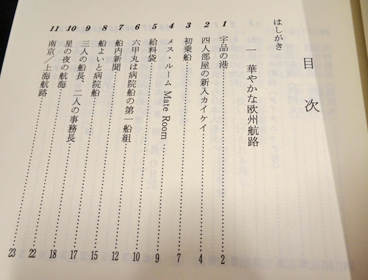 目次
はしがき
一 華やかな欧州航路
1 宇品の港 2
2 四人部屋の新入カイケイ 4
3 初乗船 7
4 メス・ルーム Mate Room 9
5 給料袋 10
6 六甲丸は病院船の第一船組 10
7 船内新聞 12
8 船よいと病院船 15
9 三人の船長、二人の事務長 17
10 星の夜の航海 18
11 南京／上海航路 22
23